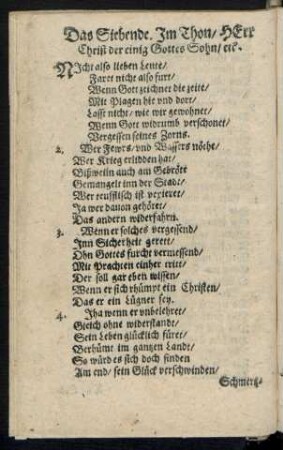 Das Siebende. Im Thon/ HErr
Christ der einig Gottes Sohn/ etc.
NIcht also lieben Leute/
Faret nicht also furt/
Wenn Gott zeichnet die zeite/
Mit Plagen hie vnd dort/
Lasst nicht/ wie wir gewohnet/
Wenn Gott widrumb verschonet/
Vergessen seines Zorns.
2. Wer Fewrs/ vnd Wassers nöthe/
Wer Krieg erlidden hat/
Bißweiln auch am Gebröte
Gemangelt inn der Stadt/
Wer teufflisch ist vexieret/
Ja wer dauon gehöret/
Das andern widerfahrn.
3. Wenn er solches vergessend/
Inn Sicherheit gerett/
Ohn Gottes furcht vermessend/
Mit Prachten einher tritt/
Der soll gar eben wissen/
Wenn er sich rhümpt ein Christen/
Das er ein Lügner sey.
4. Iha wenn er vnbelehret/
Gleich ohne widerstandt/
Sein Leben glücklich füret/
Berhümt im gantzen Landt/
So würd es sich doch finden
Am end/ sein Glück verschwinden/
Schmertz-